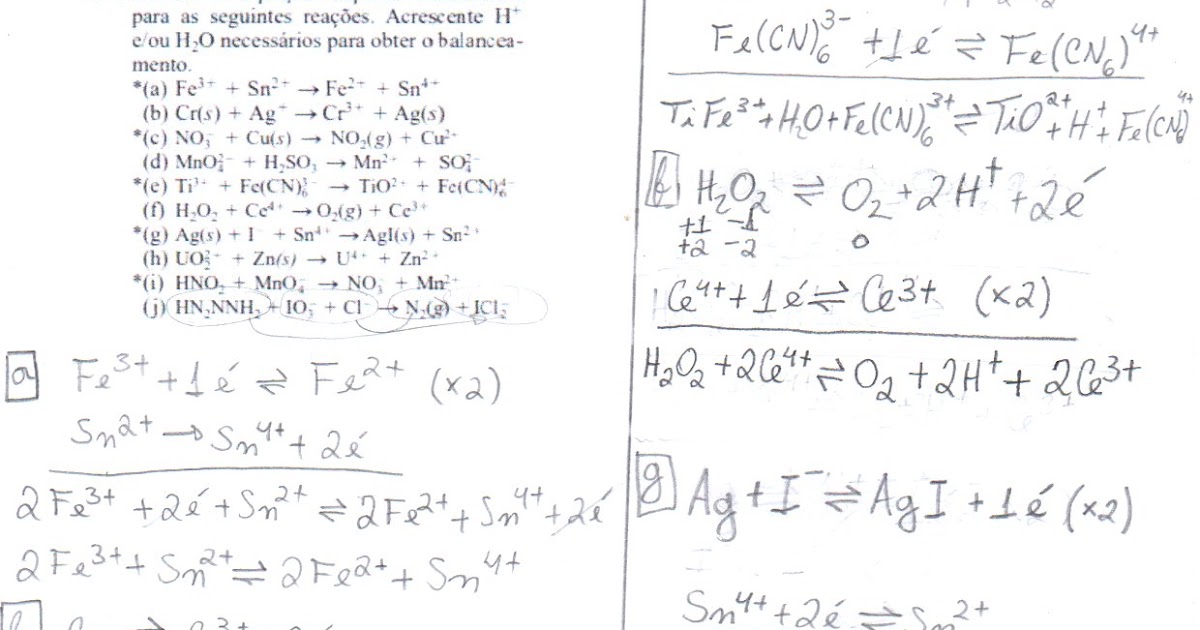 para as seguintes reações. Acrescente H⁺
e/ou H₂O necessários para obter o balancea-
mento.
*(a) Fe³⁺ + Sn²⁺ → Fe²⁺ + Sn⁴⁺
(b) Cr(s) + Ag⁺ → Cr³⁺ + Ag(s)
*(c) NO₃⁻ + Cu(s) → NO₂(g) + Cu²⁺
(d) MnO₄²⁻ + H₂SO₃ → Mn²⁺ + SO₄²⁻
*(e) Ti³⁺ + Fe(CN)₆³⁻ → TiO²⁺ + Fe(CN)₆⁴⁻
(f) H₂O₂ + Ce⁴⁺ → O₂(g) + Ce³⁺
*(g) Ag(s) + I⁻ + Sn⁴⁺ → AgI(s) + Sn²⁺
(h) UO₂²⁺ + Zn(s) → U⁴⁺ + Zn²⁺
*(i) HNO₂ + MnO₄⁻ → NO₃⁻ + Mn²⁺
(j) HN₂NNH₂ + IO₃⁻ + Cl⁻ → N₂(g) + ICl₂⁻
a Fe³⁺ + 1é ⇌ Fe²⁺ (x2)
Sn²⁺ → Sn⁴⁺ + 2é
2Fe³⁺ + 2é + Sn²⁺ ⇌ 2Fe²⁺ + Sn⁴⁺ + 2é
2Fe³⁺ + Sn²⁺ ⇌ 2Fe²⁺ + Sn⁴⁺
Fe(CN)₆³⁻ + 1é ⇌ Fe(CN₆)⁴⁺
TiFe³⁺ + H₂O + Fe(CN)₆³⁺ ⇌ TiO²⁺ + H⁺ + Fe(CN)₆⁴⁺
f H₂O₂ ⇌ O₂ + 2H⁺ + 2é
+1 -1
+2 -2 0
Ce⁴⁺ + 1é ⇌ Ce³⁺ (x2)
H₂O₂ + 2Ce⁴⁺ ⇌ O₂ + 2H⁺ + 2Ce³⁺
g Ag + I⁻ ⇌ AgI + 1é (x2)
Sn⁴⁺ + 2é ⇌ Sn²⁺